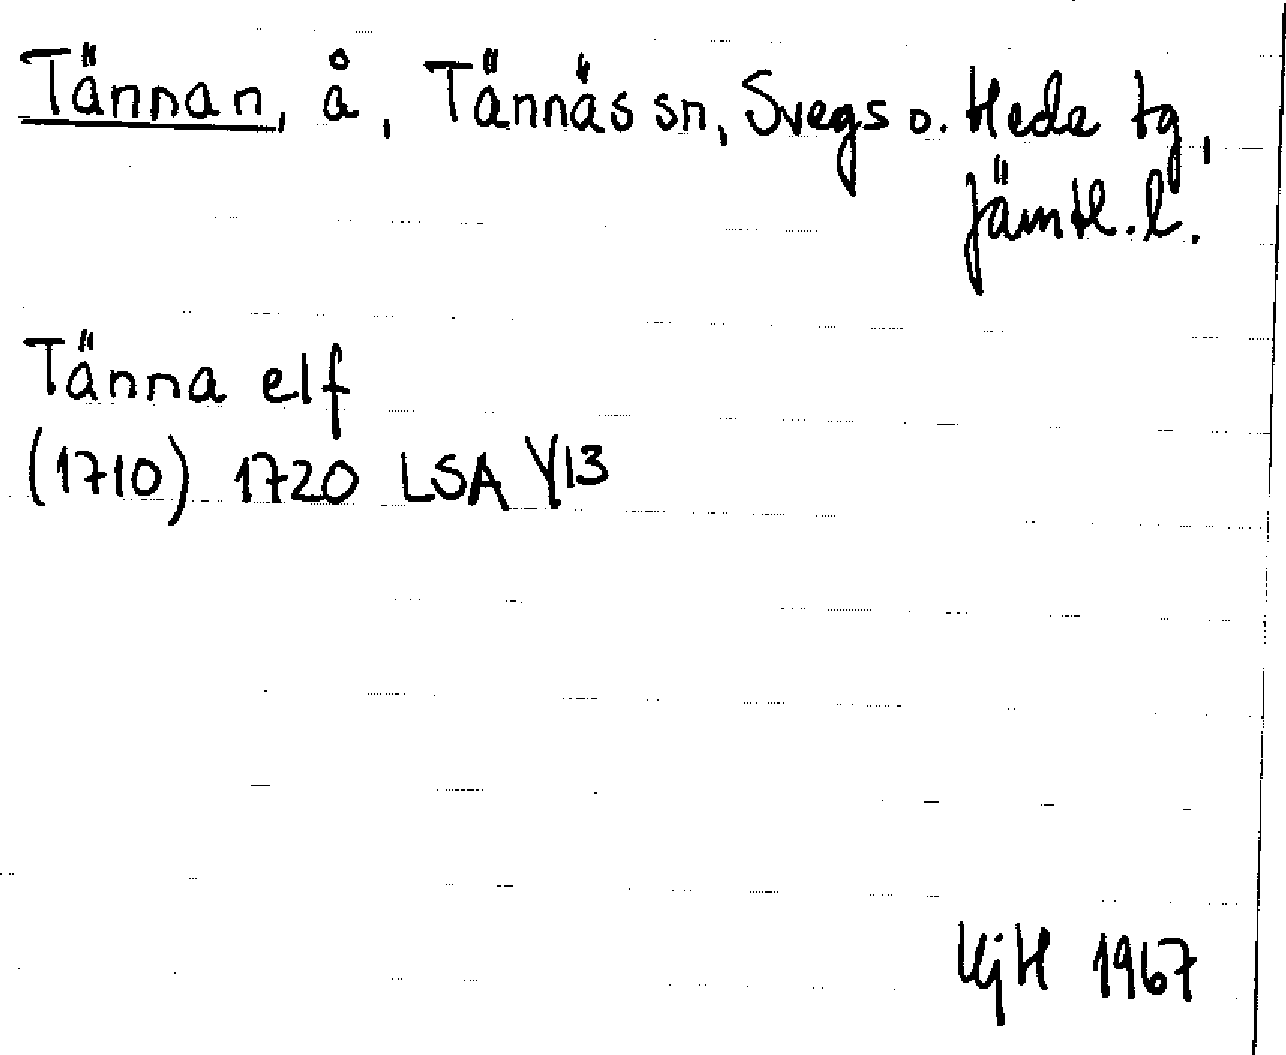 Tännan, å, Tännäs sn, Svegs o. Hede tg,
Jämtl. l.
Tänna elf
(1710) 1720 LSA Y13
KjH 1967